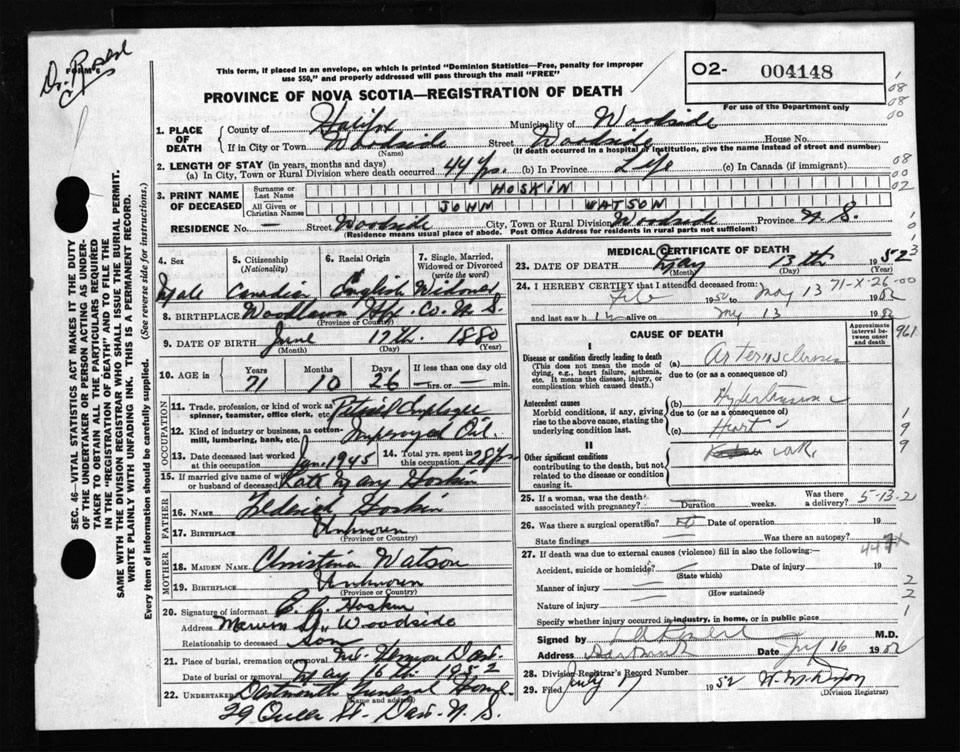 Dr. Rosen
FORM 6
This form, if placed in an envelope, on which is printed "Dominion Statistics—Free, penalty for improper
use $50," and properly addressed will pass through the mail "FREE"
O2- 004148
For use of the Department only
PROVINCE OF NOVA SCOTIA—REGISTRATION OF DEATH
1. PLACE OF DEATH
County of Halifax Municipality of Woodside
If in City or Town Woodside Street Woodside House No.
(Name) (If death occurred in a hospital or institution, give the name instead of street and number)
2. LENGTH OF STAY (in years, months and days)
(a) In City, Town or Rural Division where death occurred 44 yrs. (b) in Province Life (c) In Canada (if immigrant)
3. PRINT NAME OF DECEASED
Surname or Last Name HOSKIN
All Given or Christian Names JOHN WATSON
RESIDENCE No. — Street Woodside City, Town or Rural Division Woodside Province N.S.
(Residence means usual place of abode. Post Office Address for residents in rural parts not sufficient)
SEC. 46—VITAL STATISTICS ACT MAKES IT THE DUTY
OF THE UNDERTAKER OR PERSON ACTING AS UNDER-
TAKER TO OBTAIN ALL THE PARTICULARS REQUIRED
IN THE "REGISTRATION OF DEATH" AND TO FILE THE
SAME WITH THE DIVISION REGISTRAR WHO SHALL ISSUE THE BURIAL PERMIT.
WRITE PLAINLY WITH UNFADING INK. THIS IS A PERMANENT RECORD.
Every item of information should be carefully supplied. (See reverse side for instructions.)
4. Sex Male
5. Citizenship (Nationality) Canadian
6. Racial Origin English
7. Single, Married, Widowed or Divorced (write the word) Widowed
8. BIRTHPLACE Woodlawn Hfx. Co. N.S.
(Province or Country)
9. DATE OF BIRTH June 17th 1880
(Month) (Day) (Year)
10. AGE in Years Months Days If less than one day old
71 10 26 — hrs. or — min.
OCCUPATION
11. Trade, profession, or kind of work as
spinner, teamster, office clerk, etc. Employee
12. Kind of industry or business, as cotton-
mill, lumbering, bank, etc. Oil
13. Date deceased last worked
at this occupation Jan 1945
14. Total yrs. spent in
this occupation 28 yrs
15. If married give name of wife
or husband of deceased Mary Hoskin
FATHER
16. Name Hoskin
17. BIRTHPLACE Unknown
(Province or Country)
MOTHER
18. MAIDEN NAME Christina Watson
19. BIRTHPLACE Unknown
(Province or Country)
20. Signature of informant Hoskin
Address Woodside
Relationship to deceased Son
21. Place of burial, cremation or removal Mt. Hermon Dart.
Date of burial or removal May 16th 1952
22. UNDERTAKER Dartmouth Funeral Home
(Name and address)
29 Queen St. Dart. N.S.
MEDICAL CERTIFICATE OF DEATH
23. DATE OF DEATH May 13th 1952
(Month) (Day) (Year)
24. I HEREBY CERTIFY that I attended deceased from:
1950 to May 13 1952
71-X-26-00
and last saw h alive on 13 1952
CAUSE OF DEATH
Approximate interval between onset and death
961
I
Disease or condition directly leading to death
(This does not mean the mode of
dying, e.g., heart failure, asthenia,
etc. It means the disease, injury, or
complication which caused death.)
(a) Arteriosclerosis
due to (or as a consequence of)
Antecedent causes
Morbid conditions, if any, giving
rise to the above cause, stating the
underlying condition last.
(b) Hypertensive
due to (or as a consequence of)
(c) Heart
II
Other significant conditions
contributing to the death, but not
related to the disease or condition
causing it.
25. If a woman, was the death
associated with pregnancy? Duration weeks. Was there a delivery?
5-13-2
26. Was there a surgical operation? no Date of operation 19
State findings Was there an autopsy?
27. If death was due to external causes (violence) fill in also the following:—
Accident, suicide or homicide? Date of injury 19
(State which)
Manner of injury
(How sustained)
Nature of injury
Specify whether injury occurred in industry, in home, or in public place
Signed by M.D.
Address Dartmouth Date 16 1952
28. Division Registrar's Record Number
29. Filed July 17 1952
(Division Registrar)